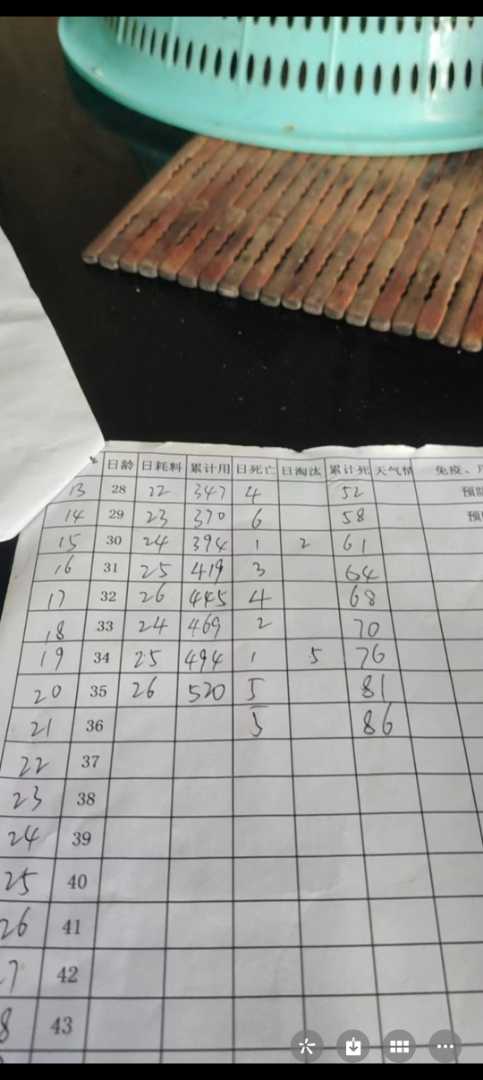 日龄 日耗料 累计用 日死亡 日淘汰 累计死 天气情 免疫、
13 28 22 347 4 52 预
14 29 23 370 6 58 预
15 30 24 394 1 2 61
16 31 25 419 3 64
17 32 26 445 4 68
18 33 24 469 2 70
19 34 25 494 1 5 76
20 35 26 520 5 81
21 36 5 86
22 37
23 38
24 39
25 40
26 41
7 42
8 43